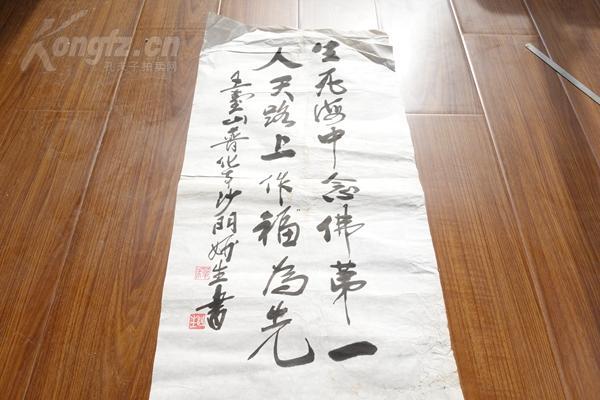 生死海中念佛第一
人天路上作福為先
五臺山普化寺沙門妙生書
Kongfz.cn
孔夫子拍卖网